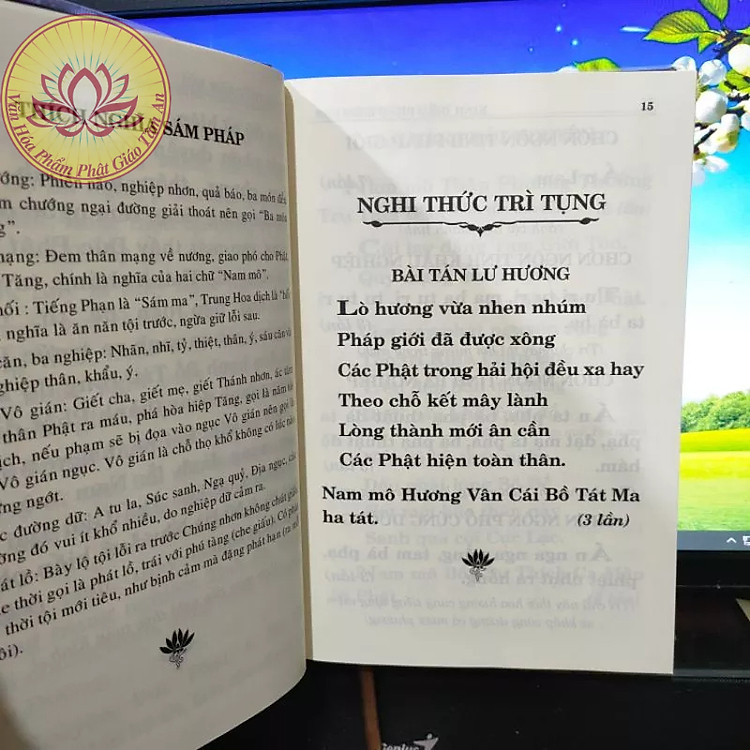 Văn Hóa Phẩm Phật Giáo Tâm An
THÍCH NGHĨA SÁM PHÁP
ớng: Phiền não, nghiệp nhơn, quả báo, ba món
m chướng ngại đường giải thoát nên gọi "Ba
g".
mạng: Đem thân mạng về nương, giao phó cho Phật,
Tăng, chính là nghĩa của hai chữ "Nam mô".
hối : Tiếng Phạn là "Sám ma", Trung Hoa dịch là "hối
nghĩa là ăn năn tội trước, ngừa giữ lỗi sau.
căn, ba nghiệp: Nhãn, nhĩ, tỷ, thiệt, thân, ý, sáu căn và
nghiệp thân, khẩu, ý.
Vô gián: Giết cha, giết mẹ, giết Thánh nhơn, ác tâm
thân Phật ra máu, phá hòa hiệp Tăng, gọi là năm tội
ịch, nếu phạm sẽ bị đọa vào ngục Vô gián nên gọi là
Vô gián ngục. Vô gián là chỗ thọ khổ không có lúc nào
ừng ngớt.
c đường dữ: A tu la, Súc sanh, Ngạ quỷ, Địa ngục, các
ờng đó vui ít khổ nhiều, do nghiệp dữ cảm ra.
át lồ: Bày lộ tội lỗi ra trước Chúng nhơn không chút giấu
e thời gọi là phát lồ, trái với phú tàng (che giấu). Có phát
thời tội mới tiêu, như bịnh cảm mà đặng phát hạn (ra mồ
ôi).
15
NGHI THỨC TRÌ TỤNG
BÀI TÁN LƯ HƯƠNG
Lò hương vừa nhen nhúm
Pháp giới đã được xông
Các Phật trong hải hội đều xa hay
Theo chỗ kết mây lành
Lòng thành mới ân cần
Các Phật hiện toàn thân.
Nam mô Hương Vân Cái Bồ Tát Ma
ha tát. (3 lần)
Genius